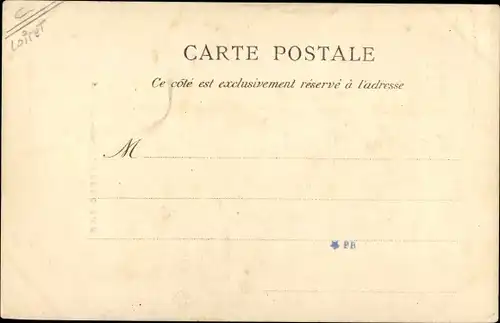 Loiret
CARTE POSTALE
Ce côté est exclusivement réservé à l'adresse
M
PB